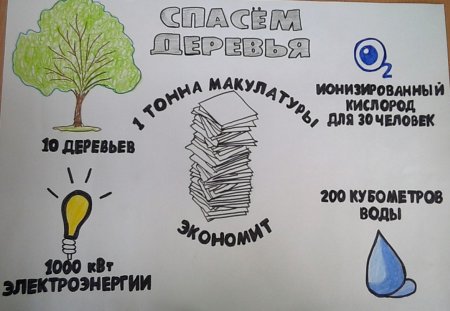 СПАСЁМ
ДЕРЕВЬЯ
10 ДЕРЕВЬЕВ
1 ТОННА МАКУЛАТУРЫ
ЭКОНОМИТ
O2
ИОНИЗИРОВАННЫЙ
КИСЛОРОД
ДЛЯ 30 ЧЕЛОВЕК
1000 кВт
ЭЛЕКТРОЭНЕРГИИ
200 КУБОМЕТРОВ
ВОДЫ